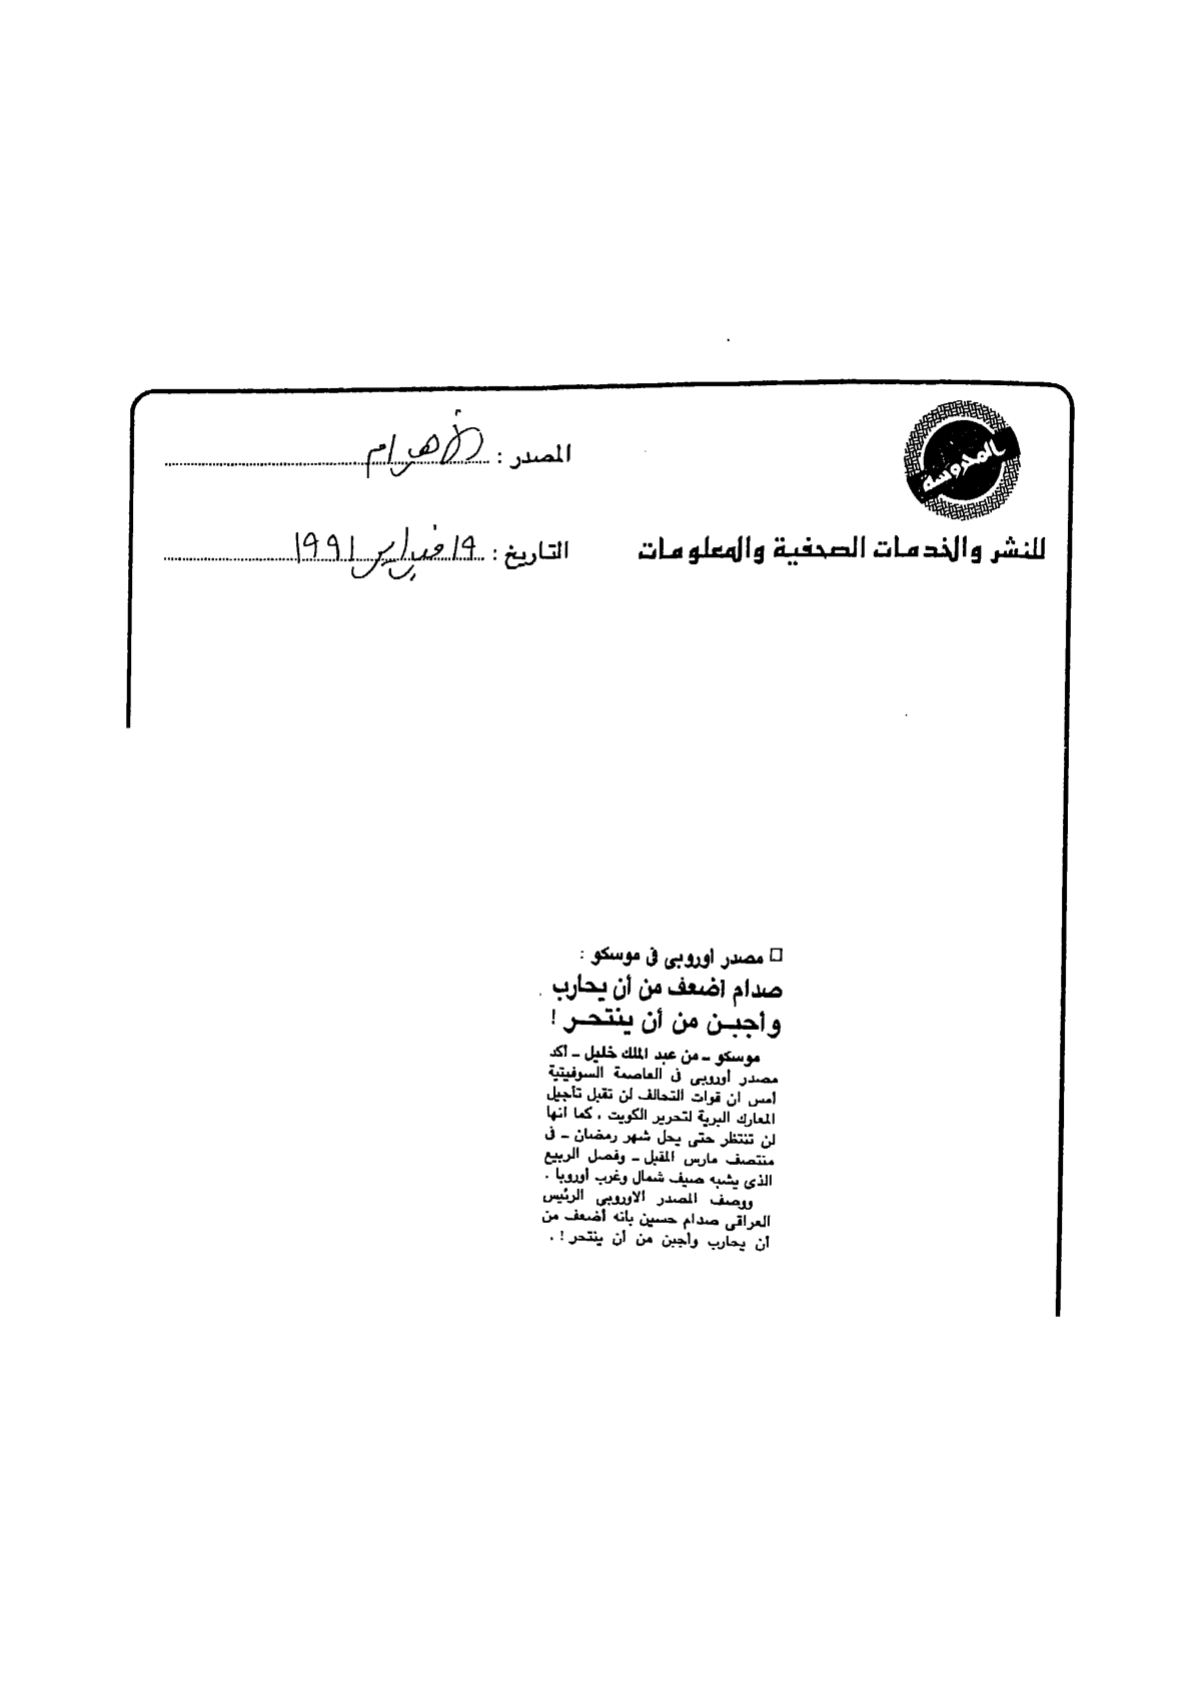 المحروسة
المصدر : الأهرام
للنشر والخدمات الصحفية والمعلومات
التاريخ : ١٩ فبراير ١٩٩١
□ مصدر اوروبى فى موسكو :
صدام اضعف من أن يحارب
وأجبــن من أن ينتحــر !
موسكو ــ من عبد الملك خليل ــ أكد
مصدر أوروبى فى العاصمة السوفيتية
أمس ان قوات التحالف لن تقبل تأجيل
المعارك البرية لتحرير الكويت ، كما انها
لن تنتظر حتى يحل شهر رمضان ــ فى
منتصف مارس المقبل ــ وفصل الربيع
الذى يشبه صيف شمال وغرب أوروبا .
ووصف المصدر الاوروبى الرئيس
العراقى صدام حسين بانه أضعف من
أن يحارب وأجبن من أن ينتحر ! .